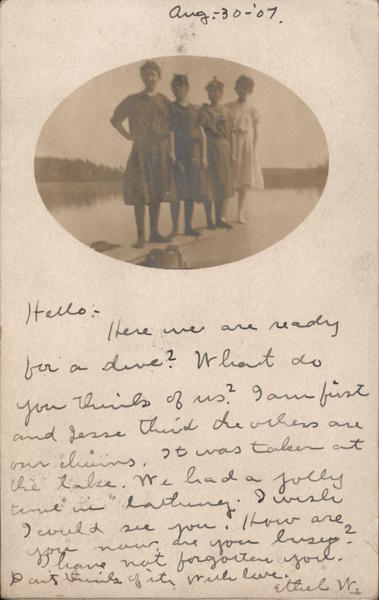 Aug-30-'07.
Hello:-
Here we are ready
for a dive? What do
you think of us? I am first
and Jesse third the others are
our chums. It was taken at
the lake. We had a jolly
time "in" bathing. I wish
I could see you. How are
you now are you busy?
I have not forgotten you.
Dont think of it. With love.
Ethel W.